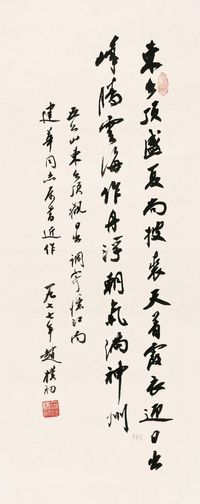 东台顶盛夏尚披裘天着霞衣迎日出
峰腾云海作舟浮朝气满神州
五台山东台顶观日出调寄忆江南
建华同志属书近作
一九七七年赵朴初